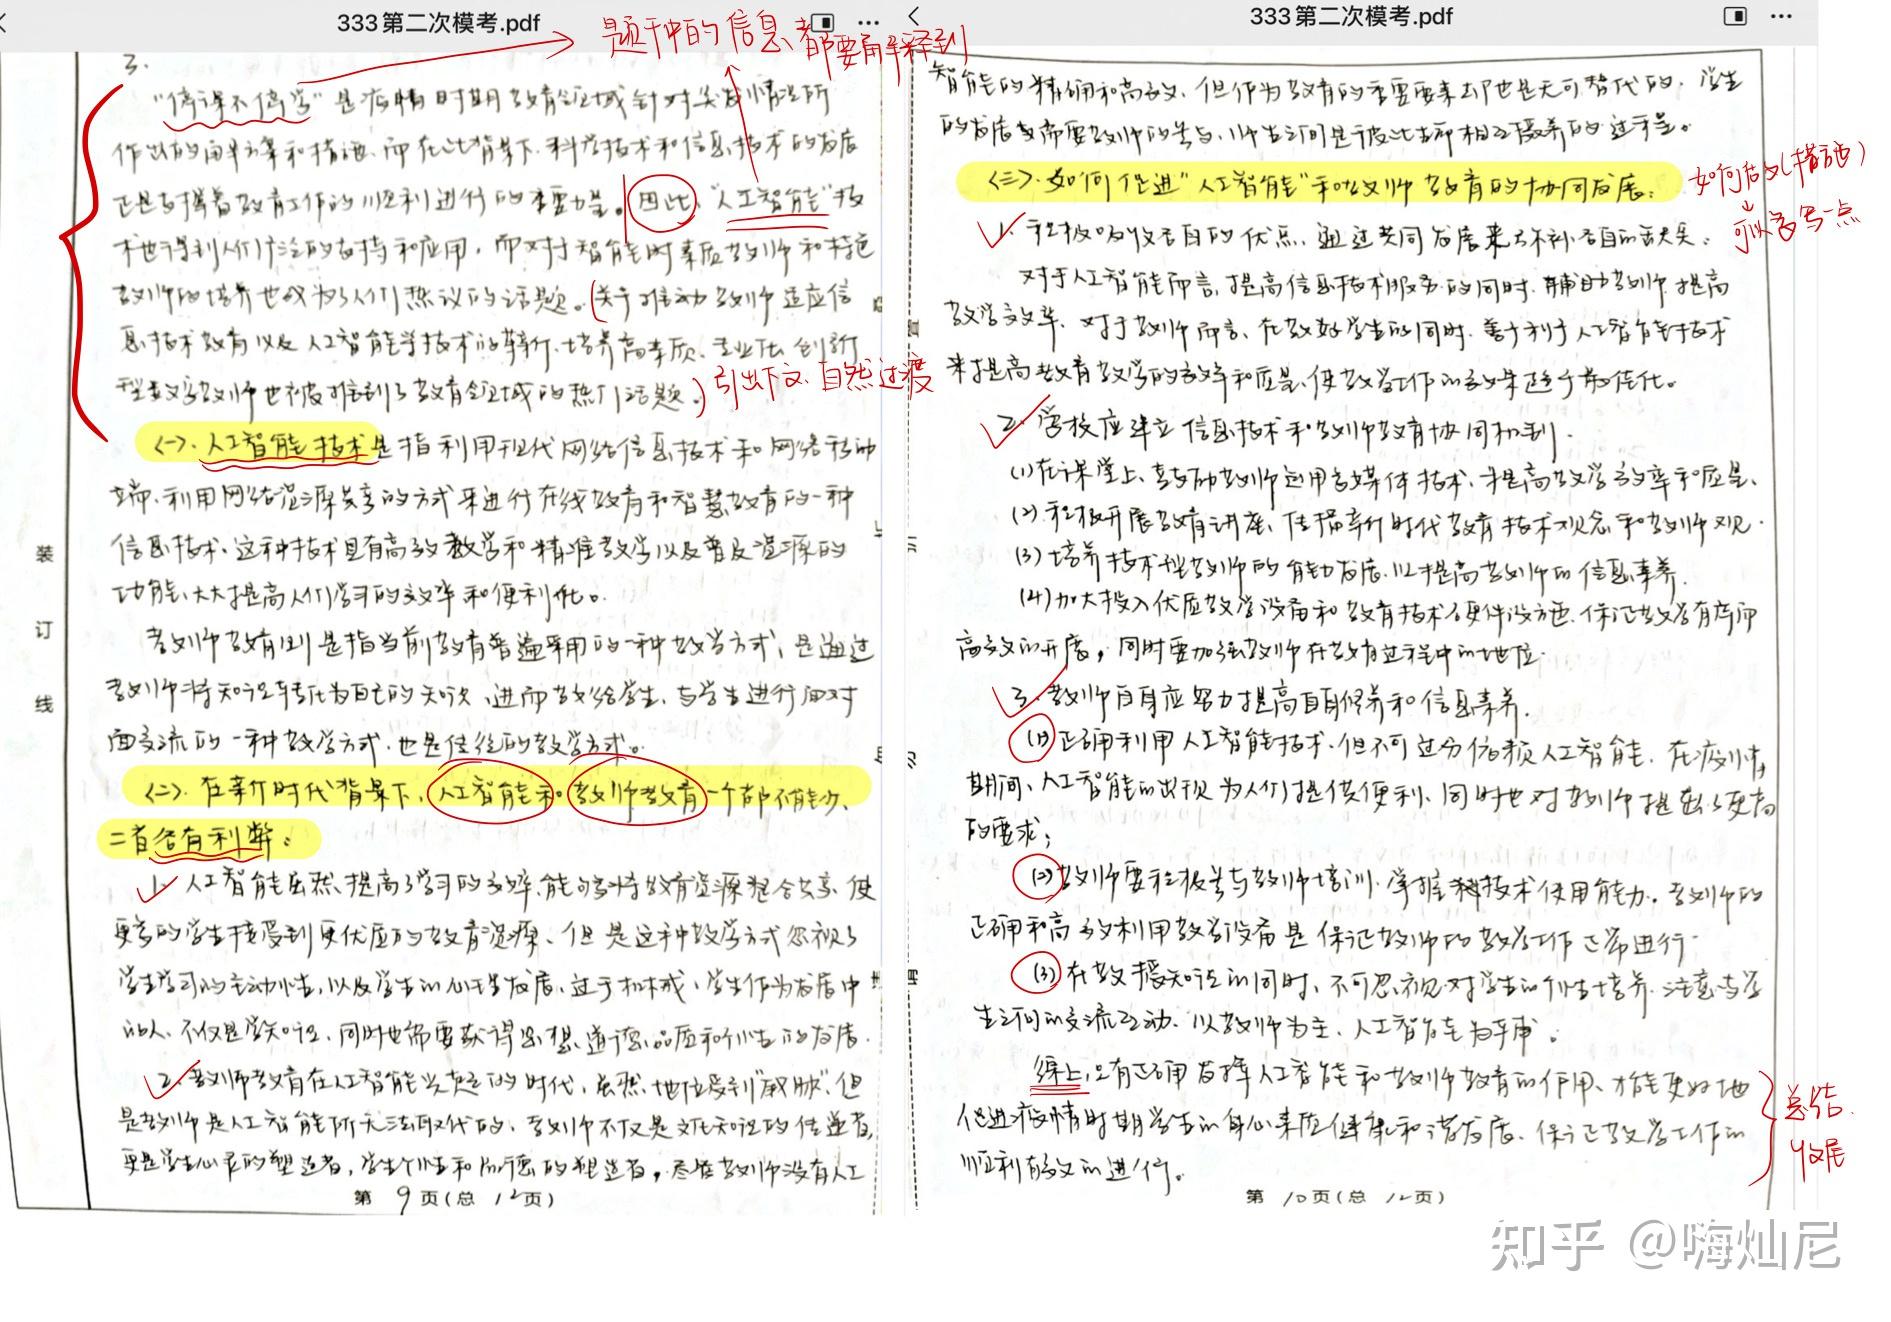 333第二次模考.pdf
题干中的信息都要解释到
3.
"停课不停学"是疫情时期教育领域针对突发情况所
作出的简单方案和措施,而在此背景下,科学技术和信息技术的发展
正是支撑着教育工作的顺利进行的重要力量。因此,"人工智能"技
术也得到人们广泛的支持和应用,而对于智能时素质教师和特色
教师的培养也成为了人们热议的话题。(关于推动教师适应信
息技术教育以及人工智能学技术的革新,培养高素质、专业化、创新
型教学教师也被推到了教育领域的热门话题。)引出下文,自然过渡
<一>.人工智能技术是指利用现代网络信息技术和网络移动
端,利用网络资源共享的方式来进行在线教育和智慧教育的一种
信息技术,这种技术具有高效教学和精准教学以及普及资源的
功能,大大提高人们学习的效率和便利化。
教师教育则是指当前教育普遍采用的一种教学方式,是通过
教师将知识转化为自己的知识,进而教给学生,与学生进行面对
面交流的一种教学方式,也是传统的教学方式。
<二>.在新时代背景下,人工智能和教师教育一个都不能少,
二者各有利弊:
1.人工智能虽然提高了学习的效率,能够将教育资源整合共享,使
更多的学生接受到更优质的教育资源,但是这种教学方式忽视了
学生学习的主动性,以及学生的心理发展,过于机械,学生作为发展中
的人,不仅是学知识,同时也需要获得思想、道德、品质和个性的发展.
2.教师教育在人工智能兴起的时代,虽然地位受到"威胁",但
是教师是人工智能所无法取代的,教师不仅是文化知识的传递者,
更是学生心灵的塑造者,学生个性和品德的塑造者,尽管教师没有人工
第9页(总12页)
装
订
线
333第二次模考.pdf
智能的精确和高效,但作为教育的重要要素却也是无可替代的,学生
的发展也需要教师的参与,师生之间是彼此吉相互滋养的过程。
<三>.如何促进"人工智能"和教师教育的协同发展:
如何启效(措施)
可以多写一点
1.积极吸收各自的优点,通过共同发展来弥补各自的缺失:
对于人工智能而言,提高信息技术服务的同时,辅助教师提高
教学效率,对于教师而言,在教好学生的同时,善于利于人工智能技术
来提高教育教学的效率和质量,使教学工作的效果趋于最佳化。
2.学校应建立信息技术和教师教育协同机制.
(1)在课堂上,鼓励教师运用多媒体技术,提高教学效率和质量.
(2)积极开展教育讲座,传播新时代教育技术观念和教师观.
(3)培养技术型教师的能力发展,以提高教师的信息素养.
(4)加大投入优质教学设备和教育技术硬件设施,保证教学有序而
高效的开展,同时要加强教师在教育过程中的地位.
3.教师自身应努力提高自身修养和信息素养.
(1)正确利用人工智能技术,但不可过分依赖人工智能,在疫情
期间,人工智能的出现为人们提供便利,同时也对教师提出了更高
的要求;
(2)教师要积极参与教师培训,掌握科技术使用能力,教师的
正确和高效利用教学设备是保证教师的教学工作正常进行.
(3)在教授知识的同时,不可忽视对学生的个性培养,注意与学
生之间的交流互动,以教师为主,人工智能为平甫。
综上,只有正确发挥人工智能和教师教育的作用,才能更好地
促进疫情时期学生的身心素质健康和谐发展,保证教学工作的
顺利有效的进行。
总结.
收尾
第10页(总12页)
知乎 @嗨灿尼